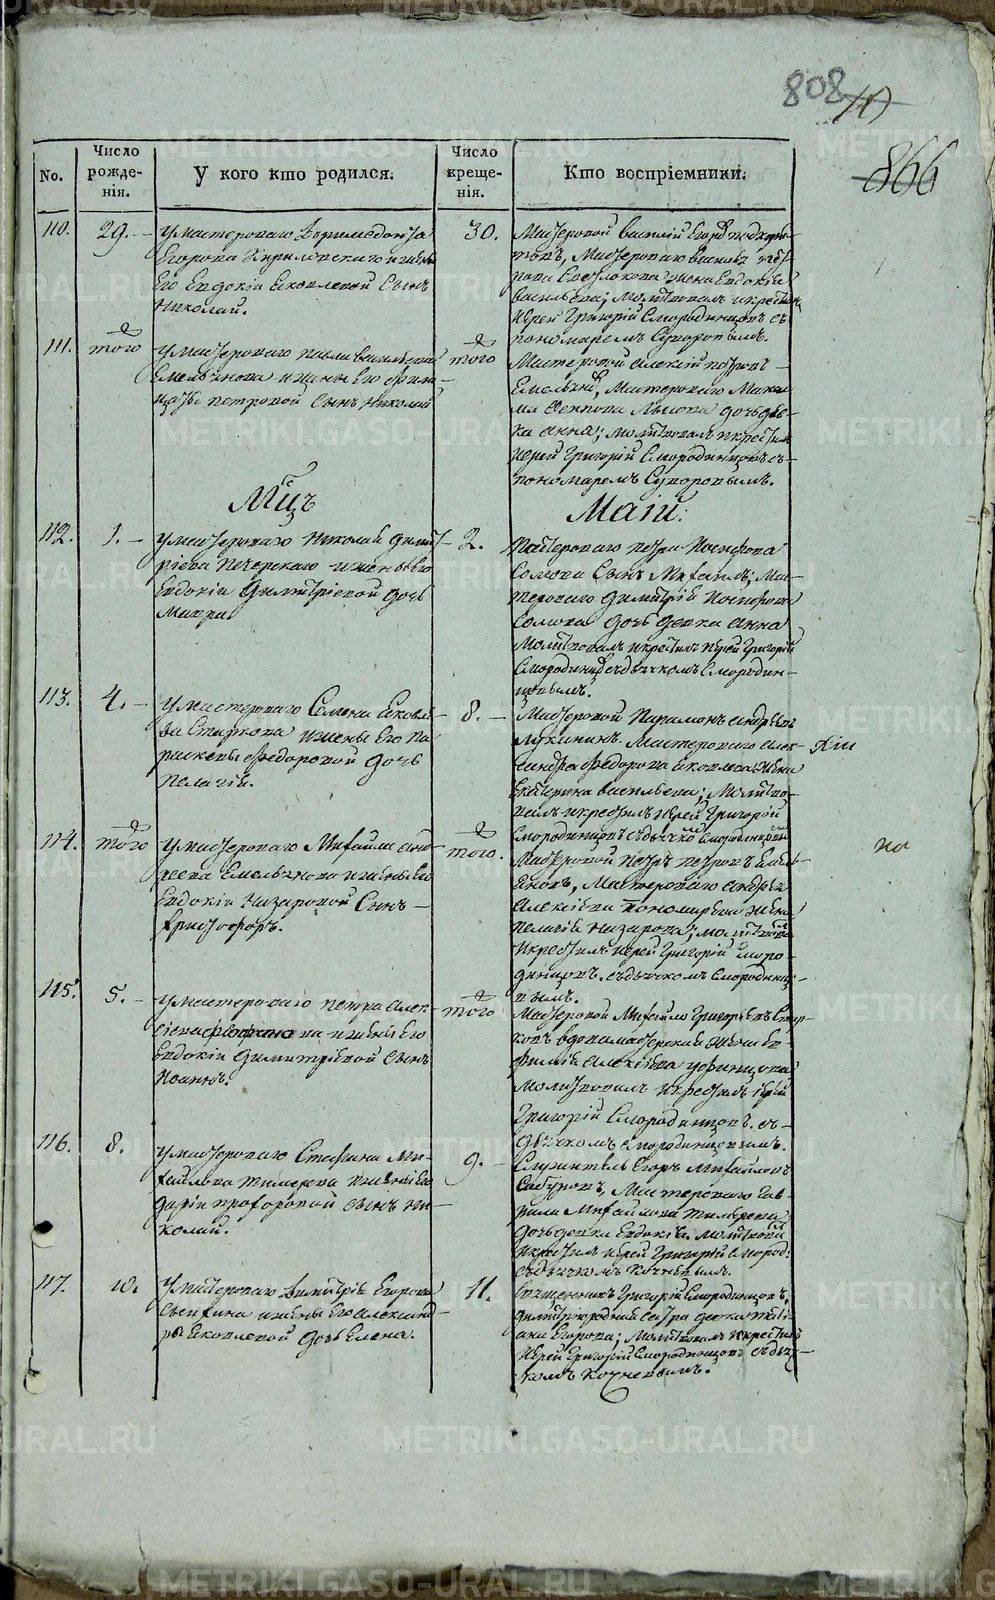 808
866
No.
Число рожденія.
У кого кто родился.
Число крещенія.
Кто воспріемники.
110.
29.
У мастероваго Доримедонта
Егорова Кириловскаго и жены
его Евдокіи Яковлевой сынъ
Николай.
30.
Мастеровой Василій Егоровъ
Мастероваго Василья
жена Евдокія
Васильева; молитвовалъ и крестилъ
Іерей Григорій Смородинцовъ съ
пономаремъ Суворовымъ.
111.
того
У мастероваго Павла Васильева
Емельянова и жены его
Петровой сынъ Николай
того
Мастеровой Алексій Петровъ
Емельяновъ, Мастероваго Макси
ма дочь дев
ка Анна; молитвовалъ и крестилъ
Іерей Григорій Смородинцовъ съ
пономаремъ Суворовымъ.
Мцъ
Маій.
112.
1.
У мастероваго Николая Димит
ріева Печерскаго и жены его
Евдокіи Димитріевой дочь
Мавра.
2.
Мастероваго Петра Іосифова
Сомова сынъ Михаилъ; Мас
тероваго Димитрія Іосифова
Сомова дочь девка Анна
Молитвовалъ и крестилъ Іерей Григорій
Смородинцовъ съ дьячкомъ Смородин
цовымъ.
113.
4.
У мастероваго Семена Яковле
ва Старкова и жены его Па
раскевы Федоровой дочь
Пелагія.
8.
Мастеровой Парамонъ Андреевъ
Лукининъ. Мастероваго Алек
сандра Федорова Яковлева жена
Екатерина Васильева; Молитво
валъ и крестилъ Іерей Григорій
Смородинцовъ съ дьячкомъ Смородинцовымъ
114.
того
У мастероваго Михаила Анд
реева Емельянова и жены его
Евдокіи Назаровой сынъ
Христофоръ.
того.
Мастеровой Петръ Петровъ Емель
яновъ, Мастероваго Андрея
Алексіева Пономарева жена
Пелагія Назарова; молитвовалъ
и крестилъ Іерей Григорій Сморо
динцовъ съ дьячкомъ Смородинцо
вымъ.
115.
5.
У мастероваго Петра Алек
сіева и жены его
Евдокіи Димитріевой сынъ
Іоаннъ.
того
Мастеровой Михайло Григорьевъ Стар
ковъ вдова мастерская жена Ев
фимія Алексіева
Молитвовалъ и крестилъ Іерей
Григорій Смородинцовъ съ
дьячкомъ Смородинцовымъ.
116.
8.
У мастероваго Стефана Ми
хайлова и жены его
Даріи Прохоровой сынъ Ни
колай.
9.
Служитель Егоръ Михайловъ
Сабуровъ, Мастероваго Гав
рила Михайлова
дочь девка Евдокія. молитвовалъ
и крестилъ Іерей Григорій Смород:
съ дьячкомъ Кочневымъ.
117.
10.
У мастероваго Димитрія Егорова
и жены его Александ
ры Яковлевой дочь Елена.
11.
Священникъ Григорій Смородинцовъ,
Димитрію родная сестра девка Тать
яна Егорова; Молитвовалъ и крестилъ
Іерей Григорій Смородинцовъ съ дьяч
комъ Кочневымъ.
METRIKI.GASO-URAL.RU